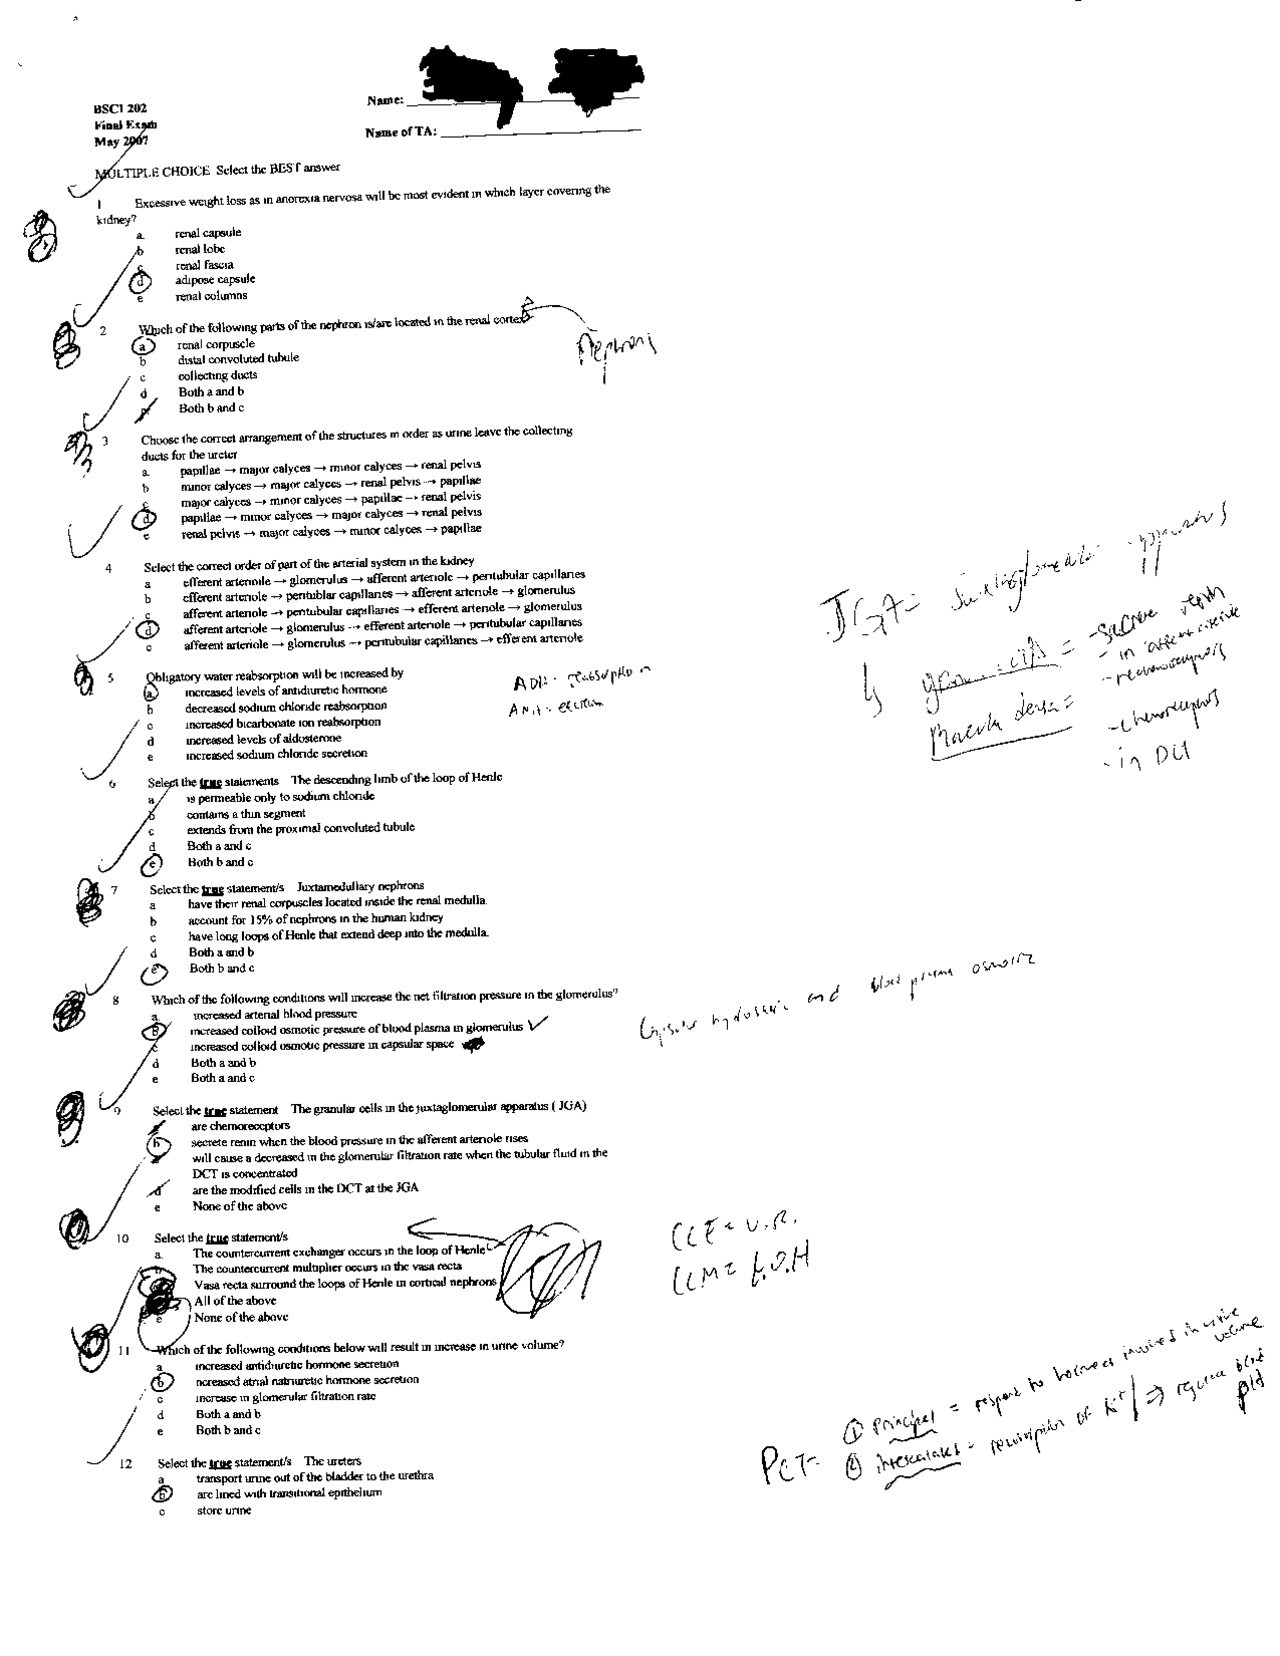 BSCI 202
Final Exam
May 2007
Name:
Name of TA:
MULTIPLE CHOICE Select the BEST answer
1 Excessive weight loss as in anorexia nervosa will be most evident in which layer covering the
kidney?
a. renal capsule
b renal lobe
c renal fascia
d adipose capsule
e renal columns
2 Which of the following parts of the nephron is/are located in the renal cortex
Nephrons
a renal corpuscle
b distal convoluted tubule
c collecting ducts
d Both a and b
e Both b and c
3 Choose the correct arrangement of the structures in order as urine leave the collecting
ducts for the ureter
a. papillae → major calyces → minor calyces → renal pelvis
b minor calyces → major calyces → renal pelvis → papillae
c major calyces → minor calyces → papillae → renal pelvis
d papillae → minor calyces → major calyces → renal pelvis
e renal pelvis → major calyces → minor calyces → papillae
4 Select the correct order of part of the arterial system in the kidney
a efferent arteriole → glomerulus → afferent arteriole → peritubular capillaries
b efferent arteriole → peritublar capillaries → afferent arteriole → glomerulus
c afferent arteriole → peritubular capillaries → efferent arteriole → glomerulus
d afferent arteriole → glomerulus → efferent arteriole → peritubular capillaries
e afferent arteriole → glomerulus → peritubular capillaries → efferent arteriole
JGA = Juxtaglomerular apparatus
= -secrete renin
- in afferent arteriole
- mechanoreceptors
Macula densa =
-chemoreceptors
- in DCT
5 Obligatory water reabsorption will be increased by
a increased levels of antidiuretic hormone
b decreased sodium chloride reabsorption
c increased bicarbonate ion reabsorption
d increased levels of aldosterone
e increased sodium chloride secretion
ADH -
6 Select the true statements The descending limb of the loop of Henle
a is permeable only to sodium chloride
b contains a thin segment
c extends from the proximal convoluted tubule
d Both a and c
e Both b and c
7 Select the true statement/s Juxtamedullary nephrons
a have their renal corpuscles located inside the renal medulla.
b account for 15% of nephrons in the human kidney
c have long loops of Henle that extend deep into the medulla.
d Both a and b
e Both b and c
8 Which of the following conditions will increase the net filtration pressure in the glomerulus?
a. increased arterial blood pressure
b increased colloid osmotic pressure of blood plasma in glomerulus
c increased colloid osmotic pressure in capsular space
d Both a and b
e Both a and c
Capsular hydrostatic and blood plasma osmotic
9 Select the true statement The granular cells in the juxtaglomerular apparatus ( JGA)
a are chemoreceptors
b secrete renin when the blood pressure in the afferent arteriole rises
c will cause a decreased in the glomerular filtration rate when the tubular fluid in the
DCT is concentrated
d are the modified cells in the DCT at the JGA
e None of the above
10 Select the true statement/s
a. The countercurrent exchanger occurs in the loop of Henle
b. The countercurrent multiplier occurs in the vasa recta
c Vasa recta surround the loops of Henle in cortical nephrons
d All of the above
e None of the above
CCE = V.R.
CCM = L.O.H
11 Which of the following conditions below will result in increase in urine volume?
a increased antidiuretic hormone secretion
b ncreased atrial natriuretic hormone secretion
c increase in glomerular filtration rate
d Both a and b
e Both b and c
PCT-
① principal = respond to hormones involved in urine volume
② intercalated - reabsorption of K+/ ⇒ regulate blood pH
12 Select the true statement/s The ureters
a transport urine out of the bladder to the urethra
b are lined with transitional epithelium
c store urine